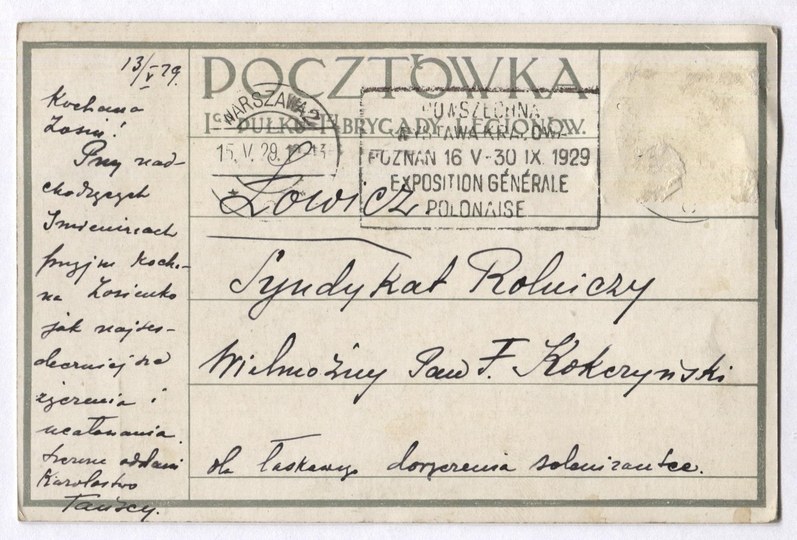 13/V 29.
Kochana
Zosiu!
Przy nad-
chodzących
Imieninach
przyjm Kocha-
na Zosieńko
jak najser-
deczniejsze
życzenia i
ucałowania.
szczerze oddani
Karolostwo
Tańscy.
POCZTÓWKA
1GO PUŁKU I BRYGADY LEGIONÓW.
WARSZAWA 2
15. V. 29.
POWSZECHNA
WYSTAWA KRAJOWA
POZNAŃ 16 V-30 IX. 1929
EXPOSITION GÉNÉRALE
POLONAISE
Łowicz
Syndykat Rolniczy
Wielmożny Pan F. Kokczyński
dla łaskawego doręczenia solenizantce.